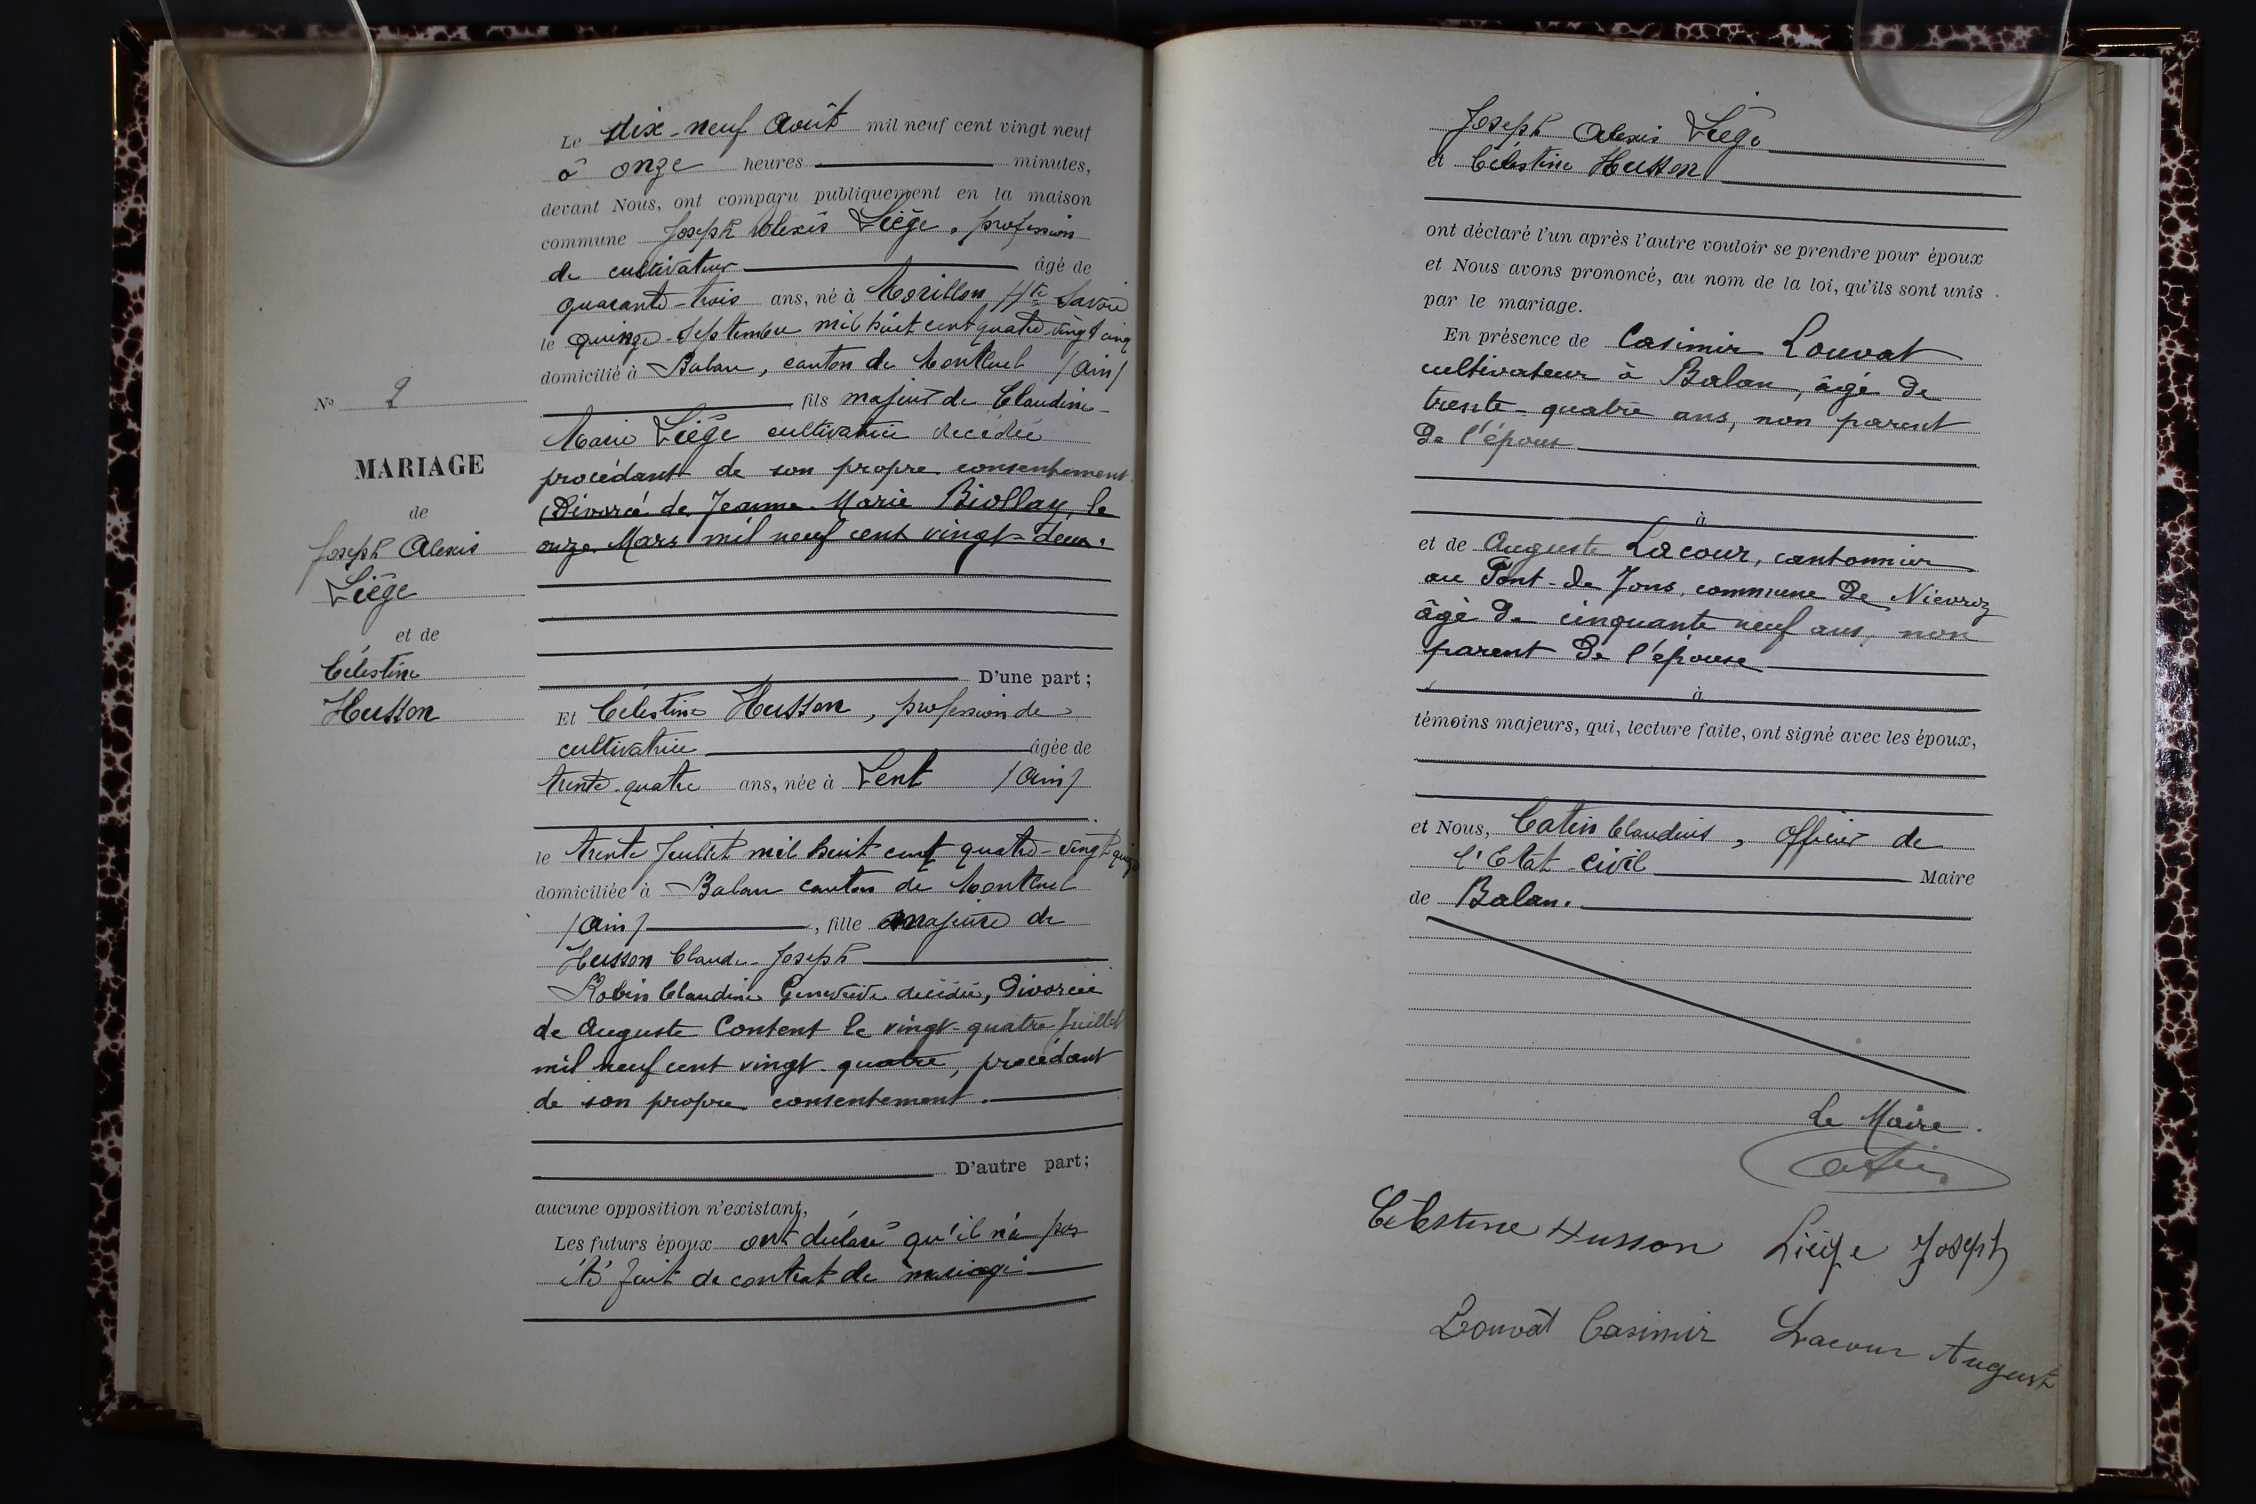 Le dix-neuf Août mil neuf cent vingt neuf
à onze heures minutes,
devant Nous, ont comparu publiquement en la maison
commune Joseph Alexis Liège, profession
de cultivateur âgé de
quarante-trois ans, né à Morillon Hte Savoie
le quinze septembre mil huit cent quatre-vingt cinq
domicilié à Balan, canton de Montluel (Ain)
fils majeur de Claudine
Marie Liège cultivatrice décédée
procédant de son propre consentement
Divorcé de Jeanne-Marie Biollay, le
onze Mars mil neuf cent vingt-deux.
D'une part;
Et Célestine Husson, profession de
cultivatrice âgée de
trente-quatre ans, née à Lent (Ain)
le trente Juillet mil huit cent quatre-vingt quinze
domiciliée à Balan canton de Montluel
(Ain), fille majeure de
Husson Claude-Joseph
Robin Claudine Geneviève décédée, Divorcée
de Auguste Content le vingt-quatre Juillet
mil neuf cent vingt-quatre, procédant
de son propre consentement.
D'autre part;
aucune opposition n'existant,
Les futurs époux ont déclaré qu'il n'a pas
été fait de contrat de mariage
No 2
MARIAGE
de
Joseph Alexis
Liège
et de
Célestine
Husson
Joseph Alexis Liège
et Célestine Husson
ont déclaré l'un après l'autre vouloir se prendre pour époux
et Nous avons prononcé, au nom de la loi, qu'ils sont unis
par le mariage.
En présence de Casimir Louvat
cultivateur à Balan, âgé de
trente-quatre ans, non parent
de l'époux
à
et de Auguste Lacour, cantonnier
au Pont-de Jons, commune de Nievroz
âgé de cinquante neuf ans, non
parent de l'épouse
à
témoins majeurs, qui, lecture faite, ont signé avec les époux,
et Nous, Catin Claudius, Officier de
l'Etat-civil Maire
de Balan.
Le Maire.
Catin
Célestine Husson Liège Joseph
Louvat Casimir Lacour August